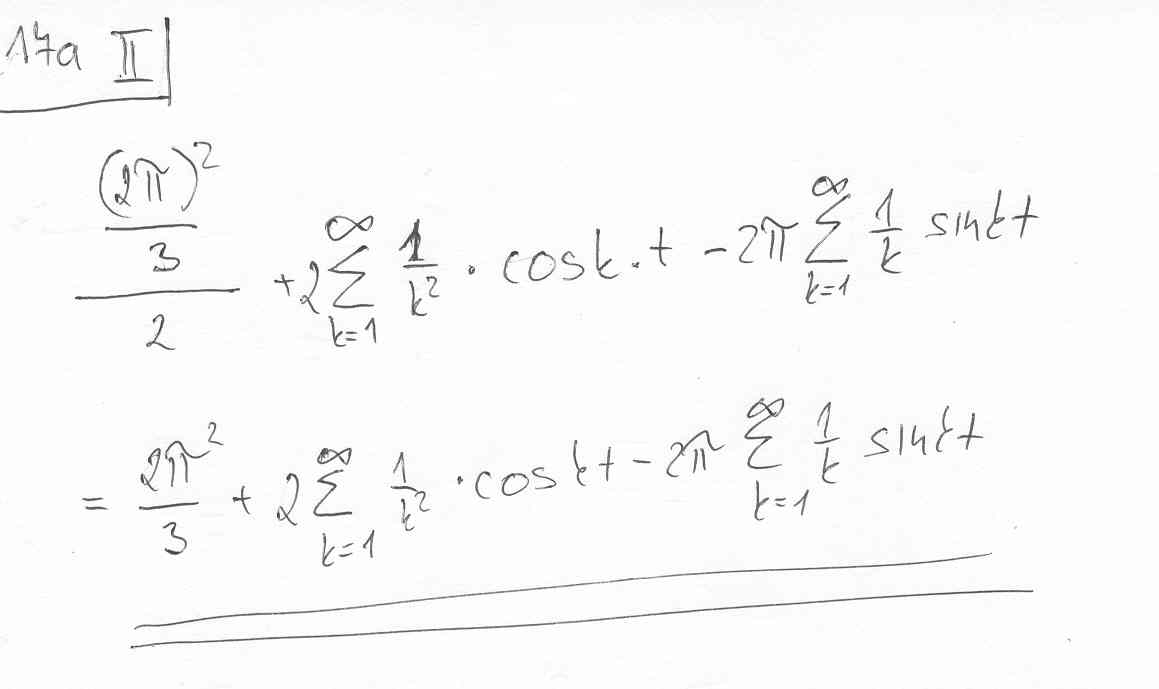 17a II
((2π)²/3)/2 + 2 ∑_{k=1}^{∞} 1/k² · cos k·t − 2π ∑_{k=1}^{∞} 1/k sin kt
= 2π²/3 + 2 ∑_{k=1}^{∞} 1/k² · cos kt − 2π ∑_{k=1}^{∞} 1/k sin kt